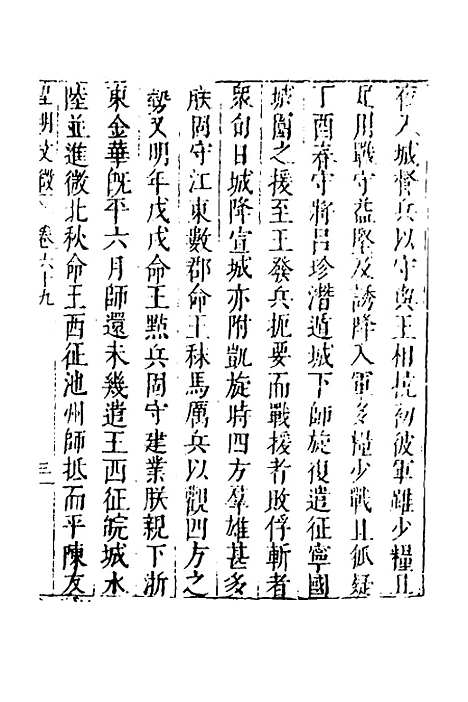 夜入城督兵以守與王相抗初彼軍雖少糧且
足用戰守益堅及誘降入軍多糧少戰且狐疑
丁酉春守將呂珍潛遁城下師旋復遣征寧國
城圍之援至王發兵扼要而戰援者敗俘斬者
眾旬日城降宣城亦附凱旋時四方羣雄甚多
朕固守江東數郡命王秣馬厲兵以觀四方之
勢又明年戊戌命王㸃兵固守建業朕親下浙
東金華旣平六月師還未幾遣王西征皖城水
陸並進微北秋命王西征池州師抵而平陳友
皇明文徵 卷六十九 三